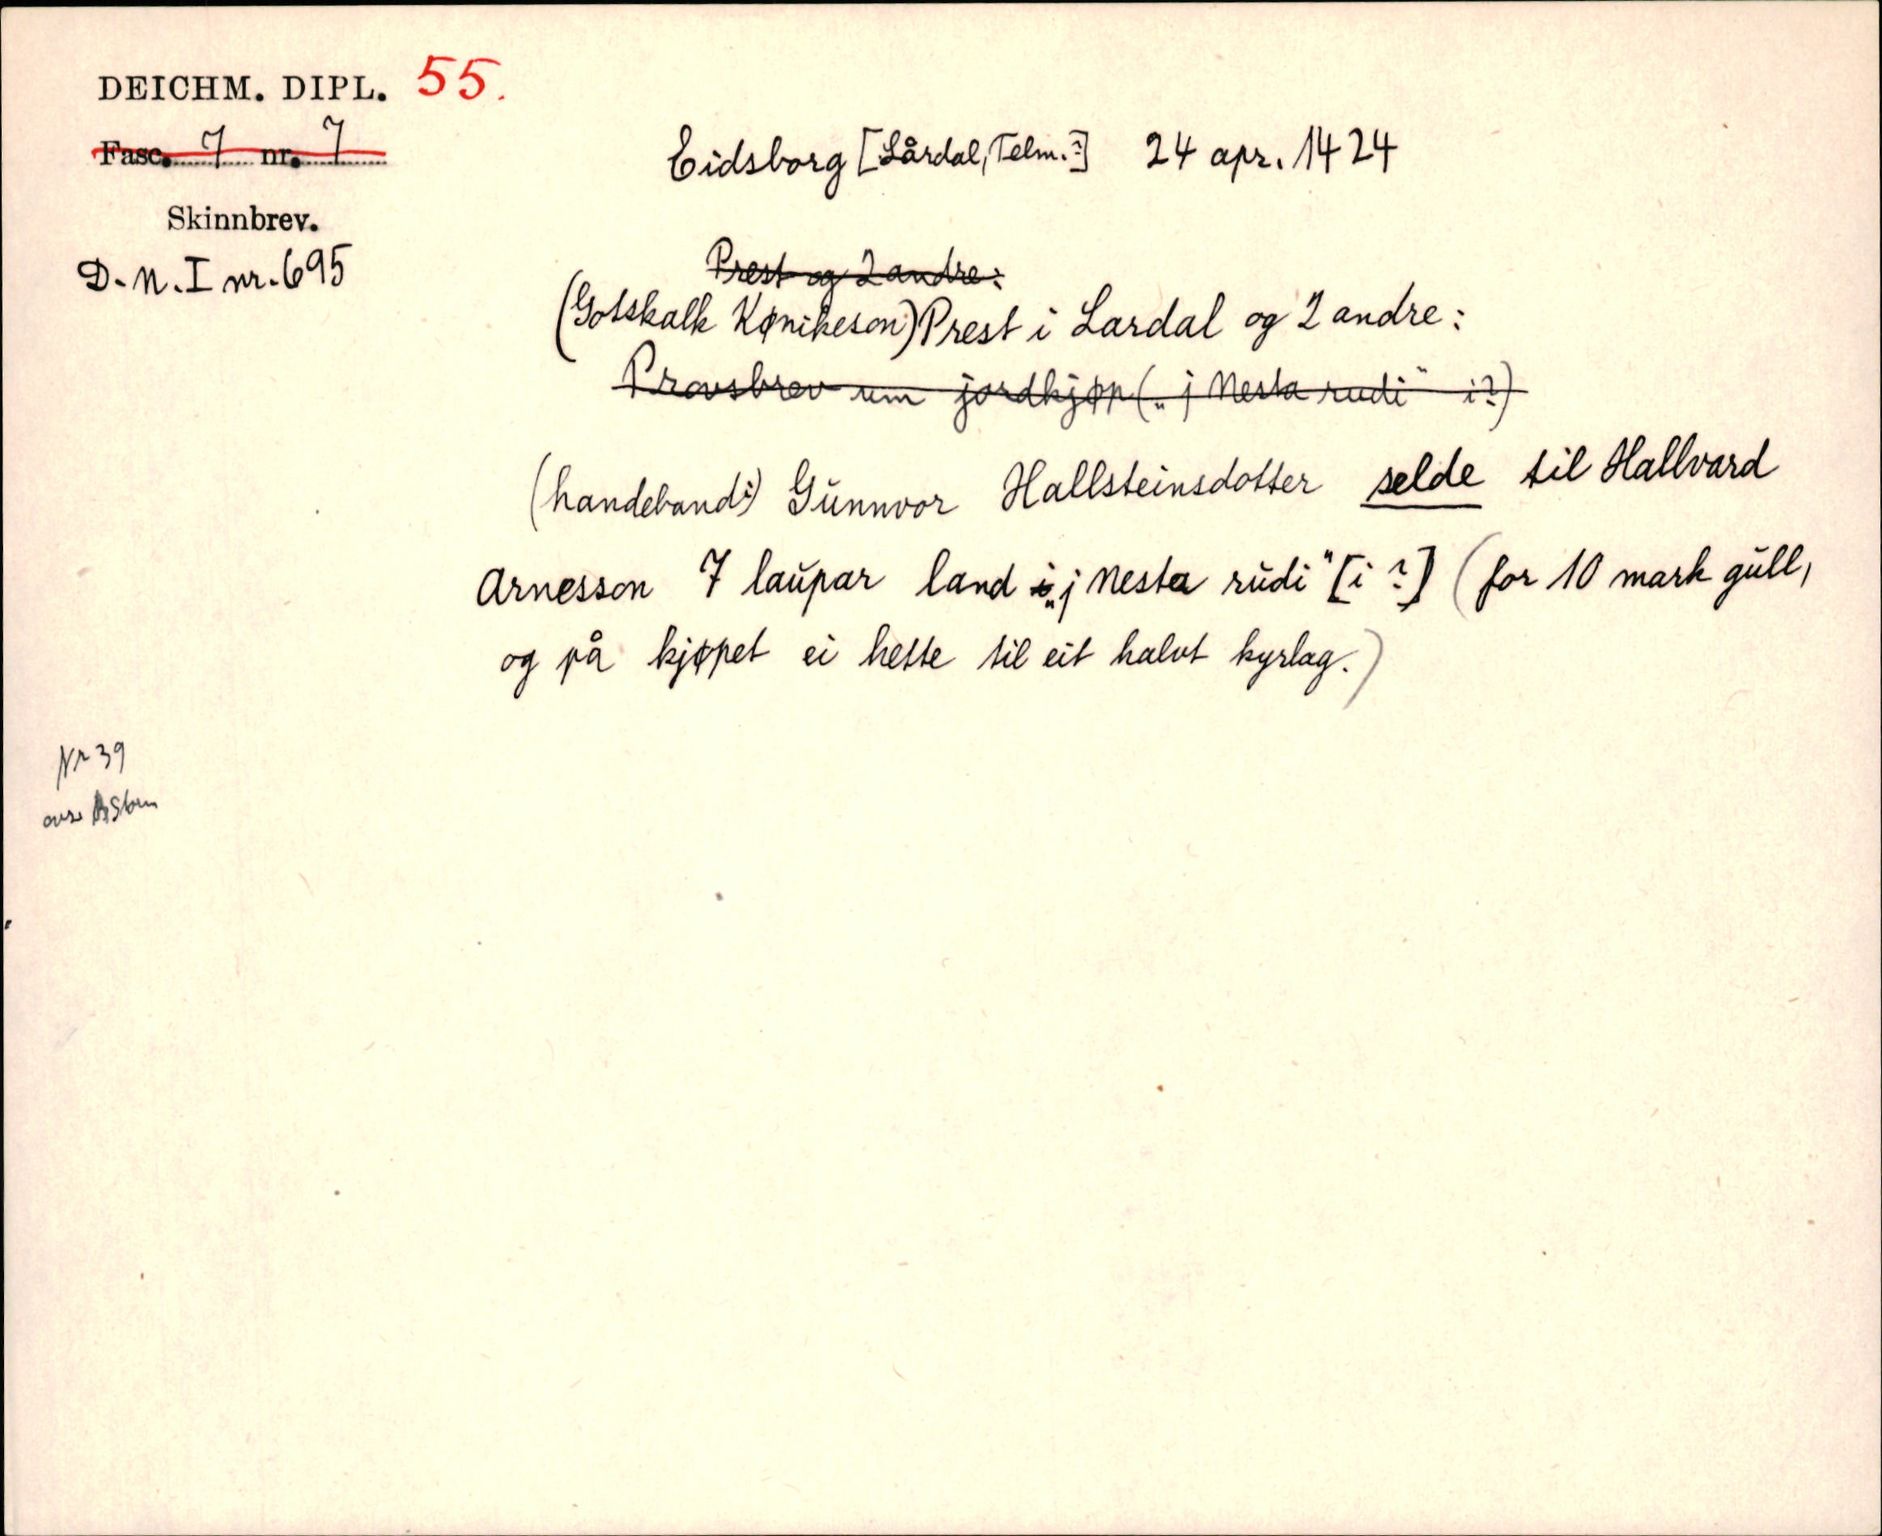 DEICHM. DIPL. 55.
Fasc. 7 nr. 7
Skinnbrev.
D. N. I nr. 695
Eidsborg [Lårdal, Telm.?] 24 apr. 1424
Prest og 2 andre:
(Gotskalk Kønikeson) Prest i Lardal og 2 andre:
Provsbrev um jordkjøp („j Nesta rudi" i?)
(handeband:) Gunnvor Hallsteinsdotter selde til Hallvard
Arnesson 7 laupar land i „j Nesta rudi" [i ?] (for 10 mark gull,
og på kjøpet ei hette til eit halvt kyrlag.)
Nr 39